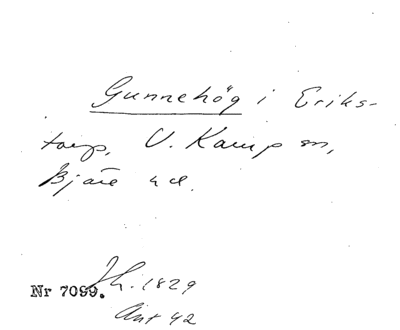 Gunnehög i Eriks-
torp, V. Karup sn,
Bjäre hd.
Jh. 1829
Nr 7099.
Ant 42